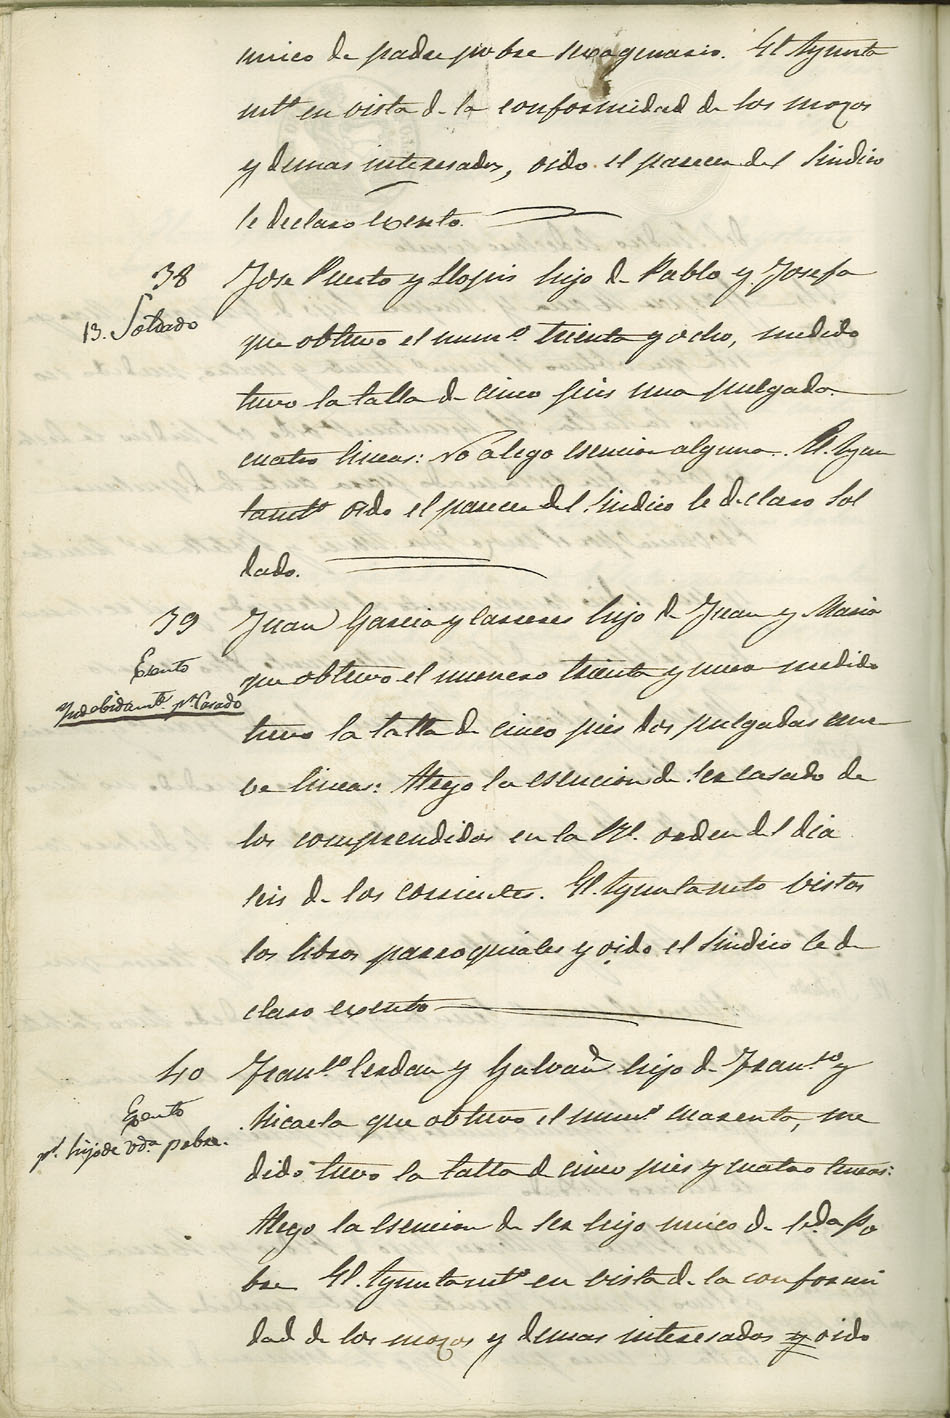 unico de padre pobre sexagenario. El Ayunta
mto en vista de la conformidad de los mozos
y demas interesados, oido el parecer del Sindico
le declaro Exento.
38
13. Soldado
Jose Puerto y Llopis hijo de Pablo y Josefa
que obtuvo el numo treinta y ocho, medido
tuvo la talla de cinco pies una pulgada
cuatro lineas: No alego esencion alguna. El Ayun
tamto oido el parecer del Sindico le declaro Sol
dado.
39
Exento
Yndebidamte pr Casado
Juan Garcia y Carreres hijo de Juan y Maria
que obtuvo el numero treinta y nueve medido
tuvo la talla de cinco pies dos pulgadas nue
ve lineas: Alego la esencion de ser casado de
los comprendidos en la Rl. orden del dia
seis de los corrientes. El Ayuntamto vistos
los libros parroquiales y oido el Sindico le de
claro exento
40
Exento
pr. hijo de Vda pobre.
Franco Cerdan y Galvañ hijo de Franco y
Micaela que obtuvo el numo cuarenta, me
dido tuvo la talla de cinco pies y cuatro lineas:
Alego la esencion de ser hijo unico de Vda Po
bre El Ayuntamto en vista de la conformi
dad de los mozos y demas interesados y oido